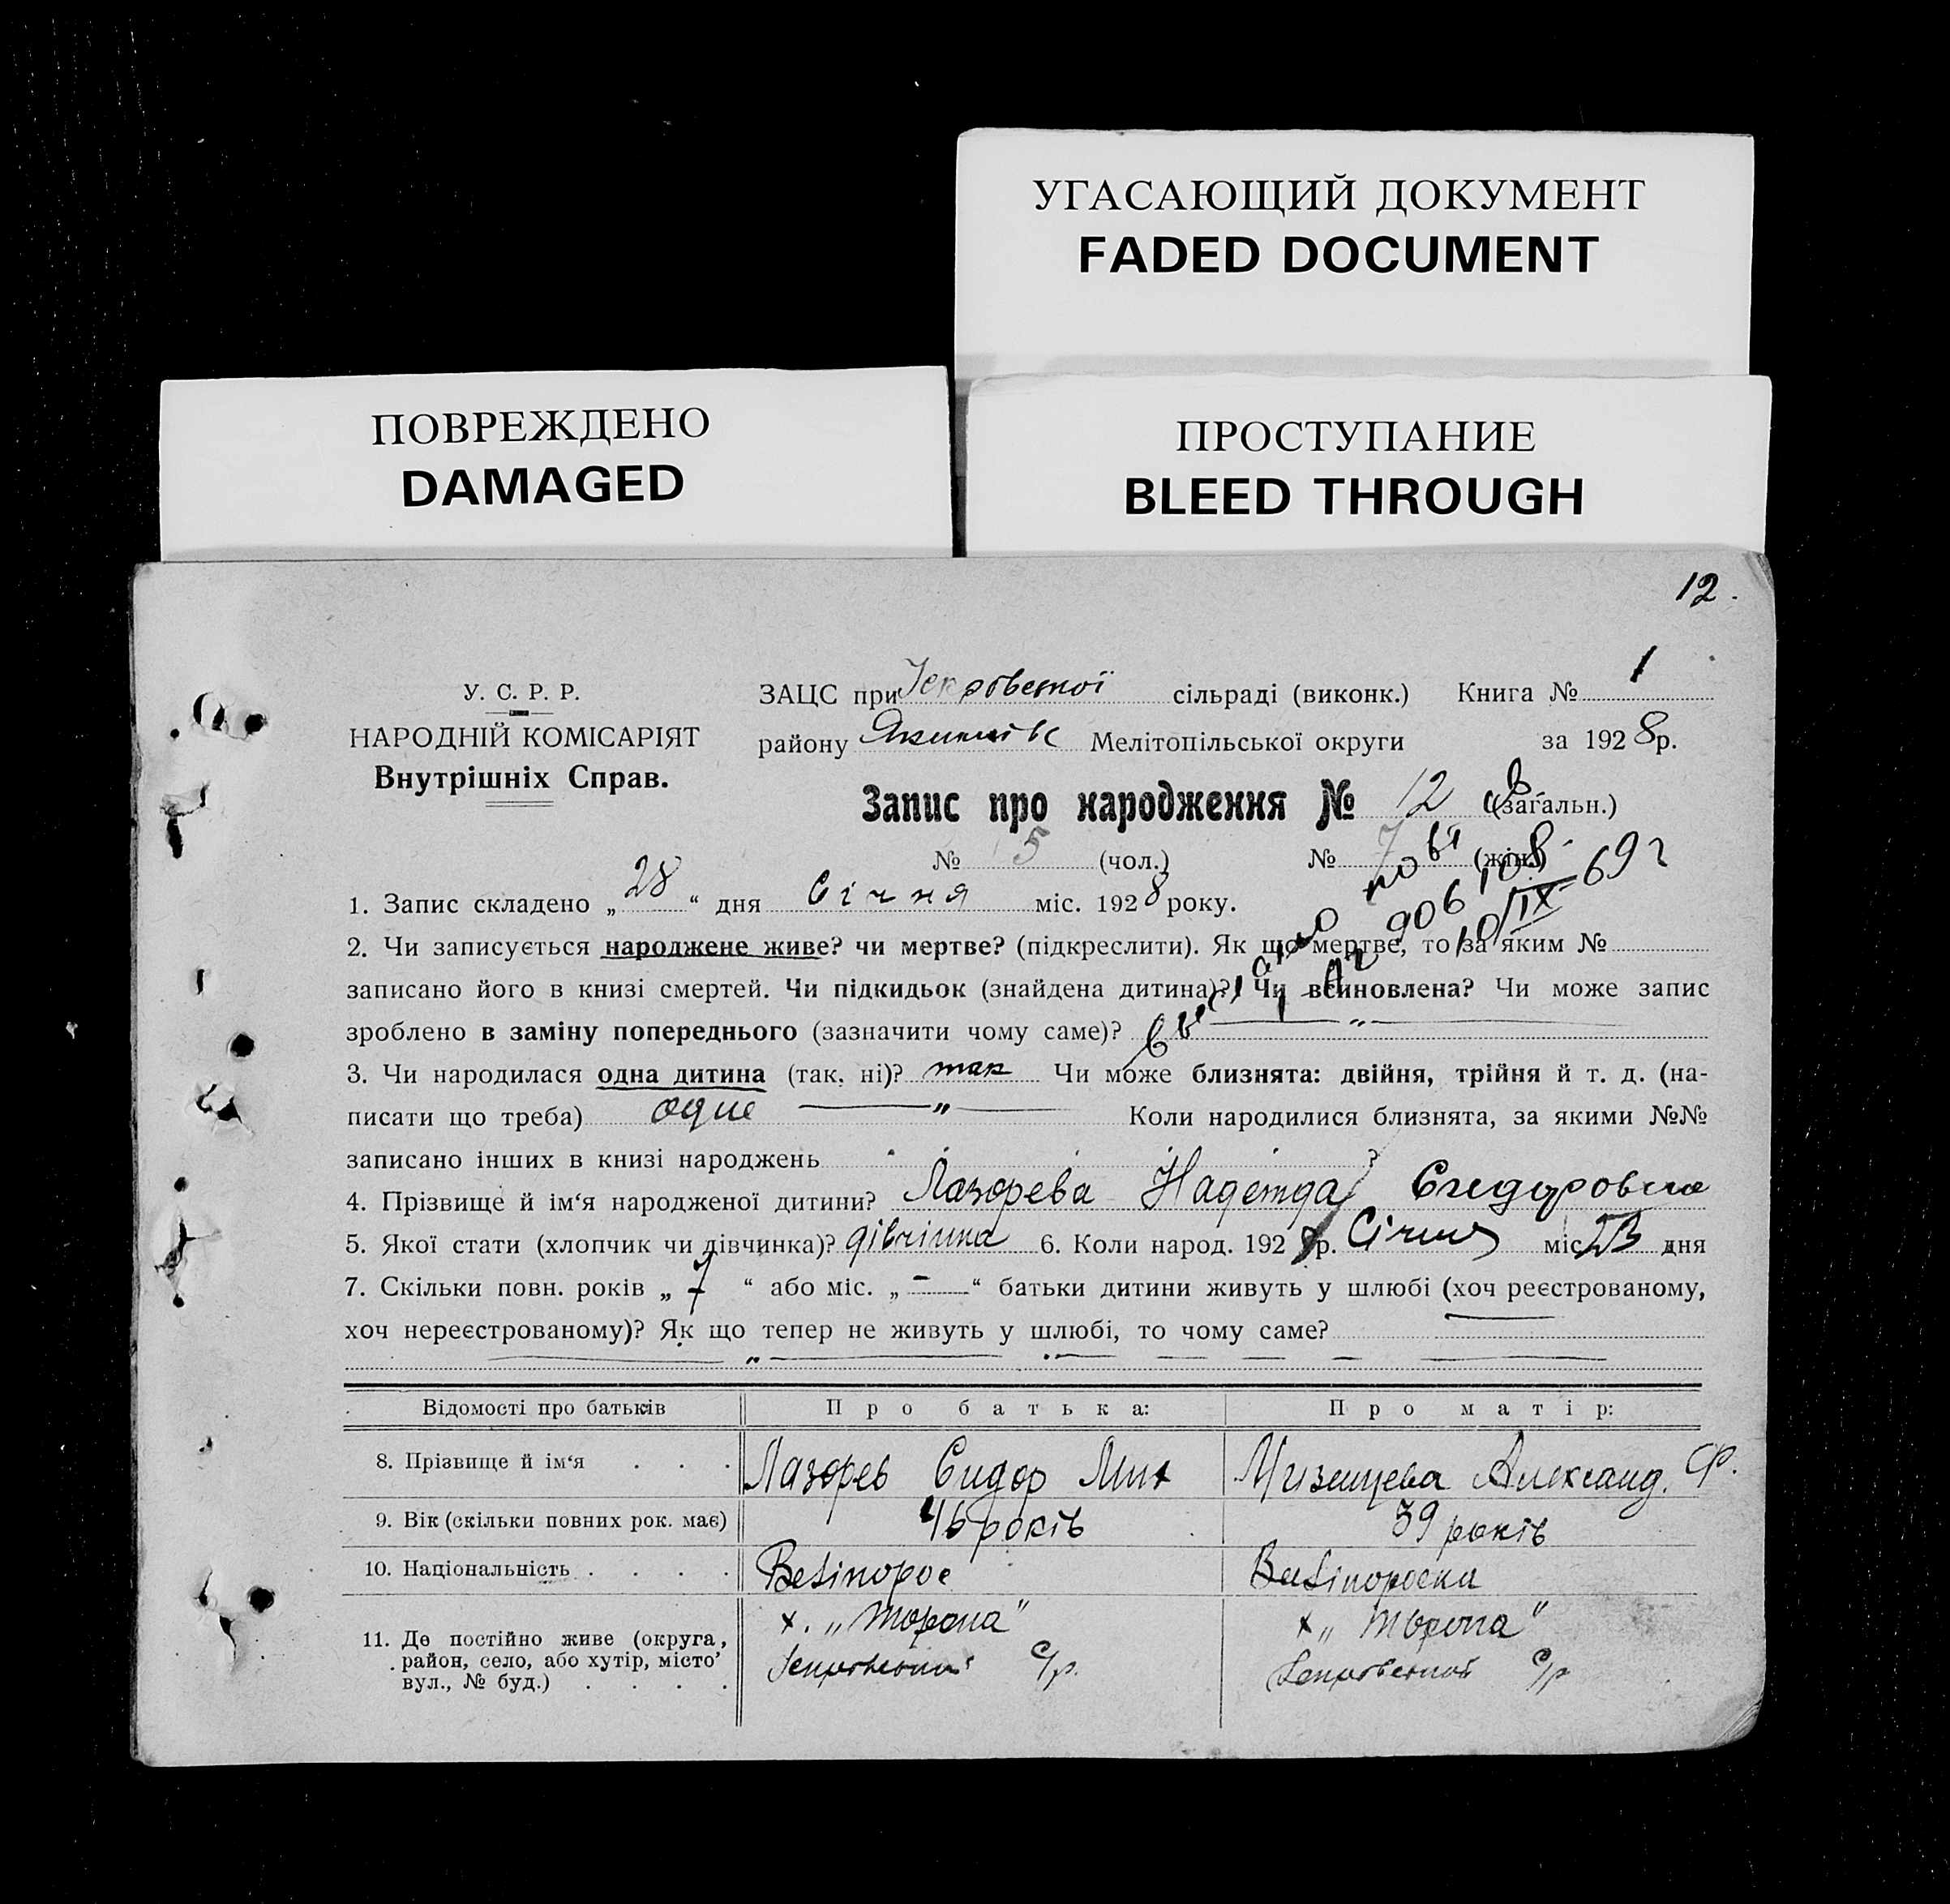 УГАСАЮЩИЙ ДОКУМЕНТ
FADED DOCUMENT
ПОВРЕЖДЕНО
DAMAGED
ПРОСТУПАНИЕ
BLEED THROUGH
12.
У. С. Р. Р.
НАРОДНІЙ КОМІСАРІЯТ
Внутрішніх Справ.
ЗАЦС при сільраді (виконк.) Книга № 1
району Мелітопільської округи за 1928 р.
Запис про народження № 12 (загальн.)
№ 5 (чол.) № 7 (жін.)
906108
10/IX-69 г
1. Запис складено „28“ дня Січня міс. 1928 року.
2. Чи записується народжене живе? чи мертве? (підкреслити). Як що мертве, то за яким №
записано його в книзі смертей. Чи підкидьок (знайдена дитина)? Чи всиновлена? Чи може запис
зроблено в заміну попереднього (зазначити чому саме)? — „ —
3. Чи народилася одна дитина (так, ні)? так Чи може близнята: двійня, трійня й т. д. (на-
писати що треба) одне — „ — Коли народилися близнята, за якими №№
записано інших в книзі народжень ?
4. Прізвище й ім‘я народженої дитини? Лазорева Надежда Сидоровна
5. Якої стати (хлопчик чи дівчинка)? дівчинка 6. Коли народ. 1928 р. Січня міс. 23 дня
7. Скільки повн. років „7“ або міс. „-“ батьки дитини живуть у шлюбі (хоч реєстрованому,
хоч нереєстрованому)? Як що тепер не живуть у шлюбі, то чому саме?
— „ —
Відомості про батьків Про батька: Про матір:
8. Прізвище й ім‘я . . . Лазорев Сидор Мих Мизинцева Александ. Ф.
9. Вік (скільки повних рок. має) 46 років 39 років
10. Національність . . . . Велінорос Велінороска
11. Де постійно живе (округа, х. „ “ х „ “
район, село, або хутір, місто’ с/р. с/р
вул., № буд.) . . . .